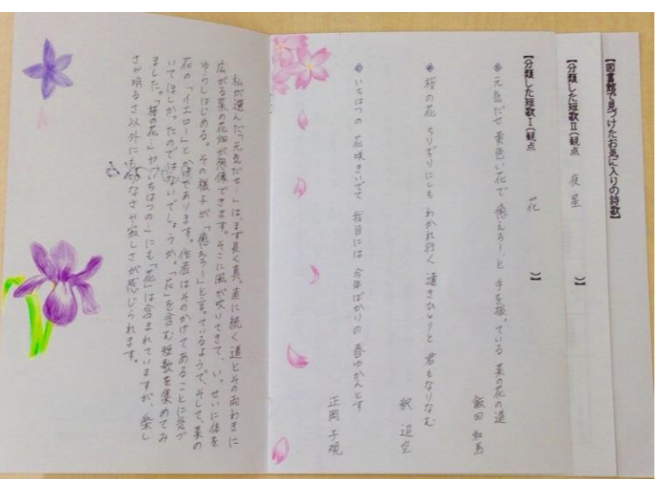 【図書館で見つけたお気に入りの詩歌】
【分類した短歌Ⅱ(観点 夜星 )】
【分類した短歌Ⅰ(観点 花 )】
元気だせ 黄色い花で 癒えろー、と 手を振っている 菜の花の道
飯田 和馬
桜の花 ちりぢりにしも わかれ行く 遠きひとりと 君もなりなむ
釈 迢空
いちはつの 花咲きいでて 我目には 今年ばかりの 春ゆかんとす
正岡 子規
私が選んだ「元気だせ」は、まず長く真っ直に続く道とその両わきに
広がる菜の花畑が想像できます。そこに風が吹いてきて、いっせいに体を
ゆらしはじめる。その様子が「癒えろー」と言っているようで、そして、菜の
花の「イエロー」とかけてあります。作者はそのかけてあることに気づ
いてほしかったのではないでしょうか。「花」を含む短歌を集めてみ
ました。「桜の花」や「いちはつの」にも「花」は含まれていますが、楽し
さや明るさ以外にも切なさや寂しさが感じられます。